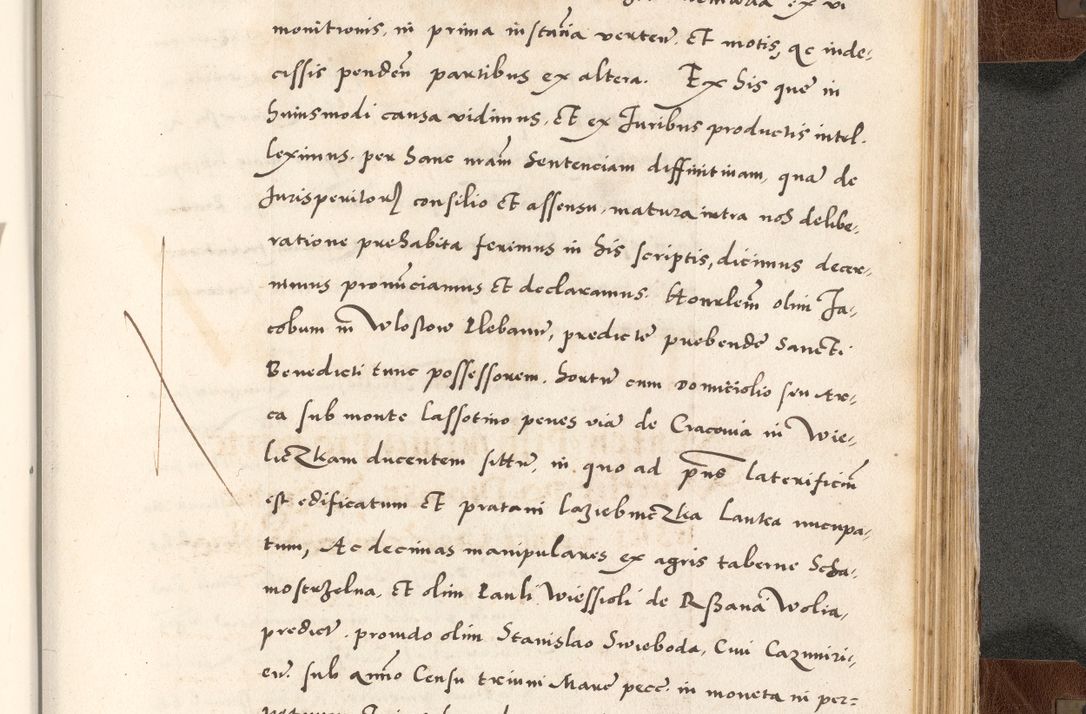 monitionis, in prima instãcia verteñ. Et motis, ac inde-
cissis pendeñ partibus ex altera. Ex his que in
huiusmodi causa vidimus, Et ex Juribus productis intel-
leximus. per hanc nrãm Sentenciam diffinitivam, quã de
Jurisperitorꝝ consilio Et assensu, matura intra nos delibe-
ratione prehabita ferimus in his scriptis, dicimus decer-
nimus pronũciamus Et declaramus. Honrlem̃ olim Ja-
cobum in Wlostow Plebanũ, predicte prebende Sancti
Benedicti tunc possessorem. hortũ cum domiciolio seu Ar-
ca sub monte Lassotino penes viã de Cracovia in Wie-
liczkam ducentem sittũ, in quo ad pñs laterificiũ
est edificatum Et pratum Laziebniczka Lanka nu̅cupa-
tum, Ac decimas manipulares ex agris taberne Scha-
mostrzelna, Et olim Pauli Wiessioli de Rſzana Wolia,
predict. provido olim Stanislao Swieboda, Civi Cazimiri-
eñ. sub añno Censu trium Marc pecc. in moneta in per-